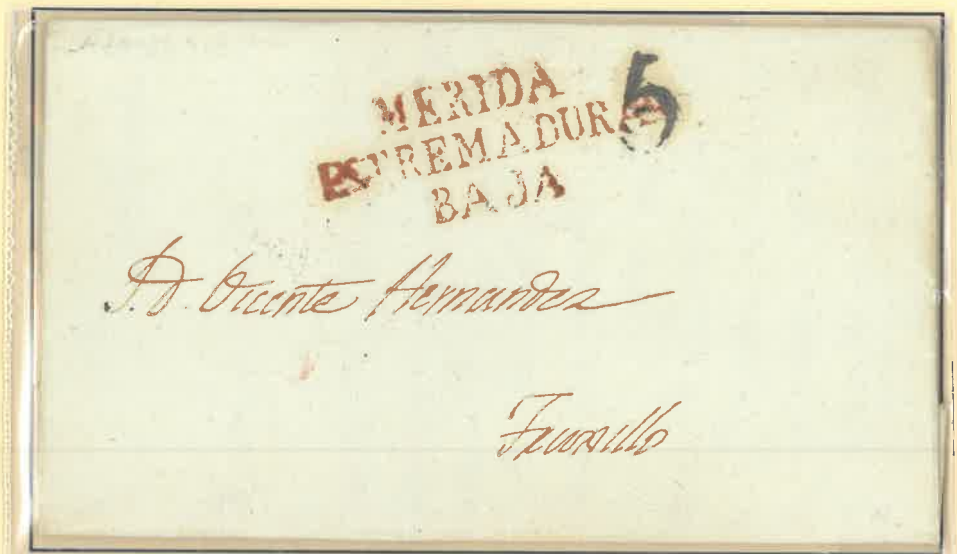 MERIDA
ESTREMADURA
BAJA
5
S. D. Vicente Hernandez
Truxillo